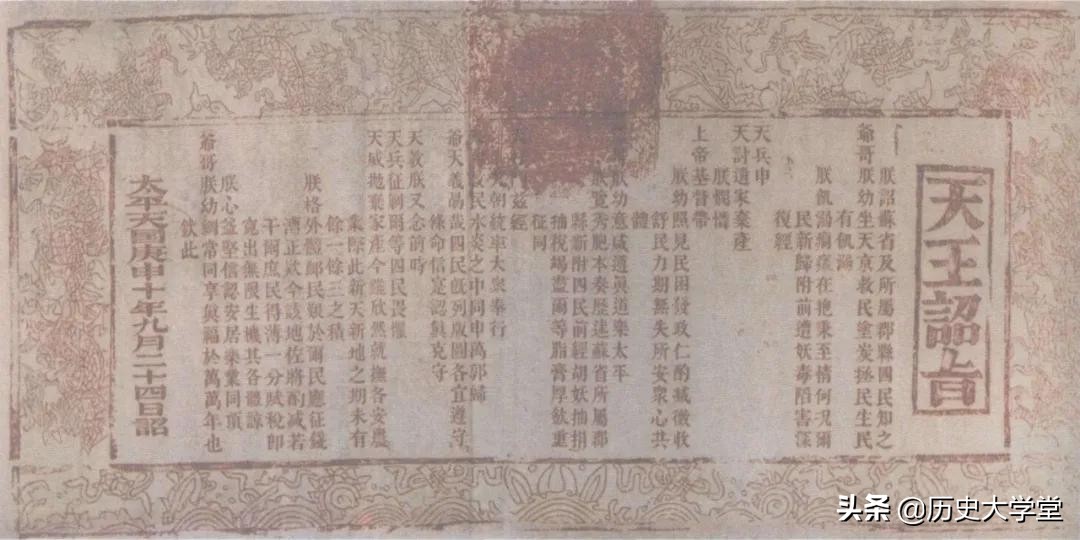 天王詔旨
朕詔蘇省及所屬郡縣四民知之
爺哥朕幼坐天京救民塗炭拯民生民
有飢溺
朕飢溺瘝瘝在抱秉至情何況爾
民新歸附前遭妖毒陷害深
復經
天兵申
天討遺家棄產
朕憫惜
上帝基督帶
朕幼照見民困發政仁酌減徵收
舒民力期無失所安衆心共
體
朕幼意咸遵真道樂太平
朕覽秀胞本奏歷述蘇省所屬郡
縣新附四民前經胡妖抽捐
抽稅塲盡爾等脂膏厚斂重
征同
天朝統率大衆奉行
民水炎之中同申萬郭歸
爺天義昺哉四民旣列版圖各宜遵守
條命信寔認眞克守
天教朕又念前時
天兵征剿爾等四民畏懼
天威拋棄家產今雖欣然就撫各安農
業際此新天新地之期未有
餘一餘三之積
朕格外體䘏民艱於爾民應征錢
漕正款今該地佐將酌减若
干爾庶民得薄一分賦稅卽
寬出無限生機其各體諒
朕心益堅信認安居樂業同頂
爺哥朕幼綱常同享眞福於萬萬年也
欽此
太平天囯庚申十年九月二十四日詔
头条 @历史大学堂